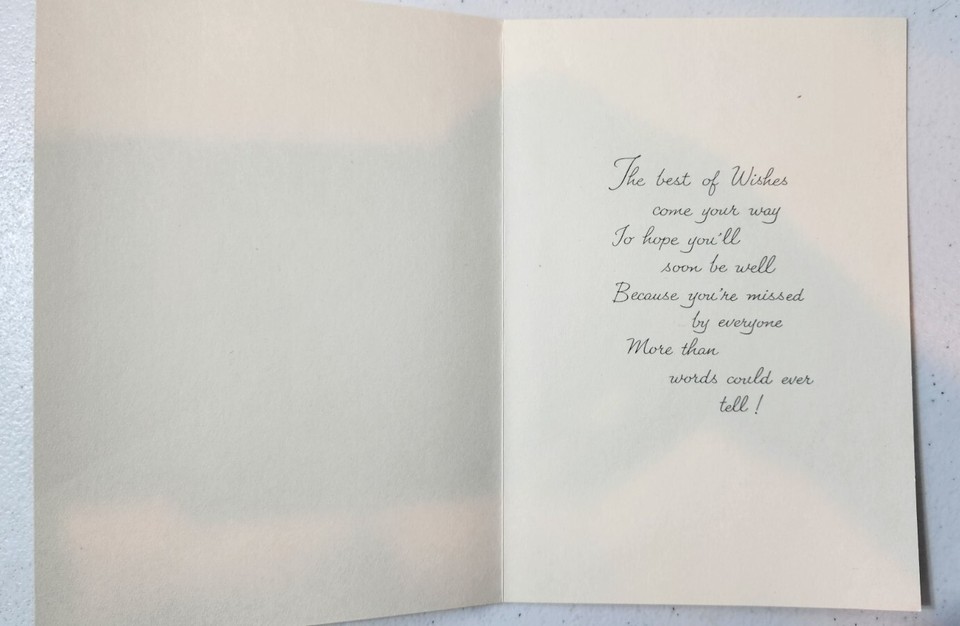 The best of Wishes
come your way
To hope you'll
soon be well
Because you're missed
by everyone
More than
words could ever
tell!